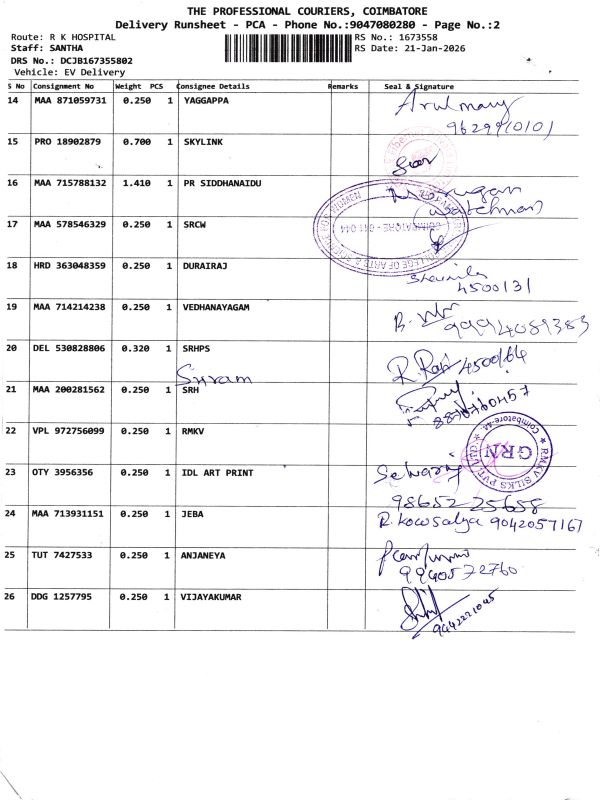 THE PROFESSIONAL COURIERS, COIMBATORE
Delivery Runsheet - PCA - Phone No.:9047080280 - Page No.:2
Route: R K HOSPITAL RS No.: 1673558
Staff: SANTHA RS Date: 21-Jan-2026
DRS No.: DCJB167355802
Vehicle: EV Delivery
S No Consignment No Weight PCS Consignee Details Remarks Seal & Signature
14 MAA 871059731 0.250 1 YAGGAPPA Arulmary
9629910101
15 PRO 18902879 0.700 1 SKYLINK
16 MAA 715788132 1.410 1 PR SIDDHANAIDU Murugan
(watchman)
17 MAA 578546329 0.250 1 SRCW
COLLEGE OF ARTS & SCIENCE FOR WOMEN
COIMBATORE - 641 044
18 HRD 363048359 0.250 1 DURAIRAJ Sharmila
4500131
19 MAA 714214238 0.250 1 VEDHANAYAGAM 9994089383
20 DEL 530828806 0.320 1 SRHPS R. Raji 4500164
Sriram
21 MAA 200281562 0.250 1 SRH 8870760457
22 VPL 972756099 0.250 1 RMKV
RMKV SILKS PVT LTD
Coimbatore-44
GRN
23 OTY 3956356 0.250 1 IDL ART PRINT Selvaraj
98652 25658
24 MAA 713931151 0.250 1 JEBA R. Kowsalya 9042057167
25 TUT 7427533 0.250 1 ANJANEYA
9940572760
26 DDG 1257795 0.250 1 VIJAYAKUMAR
9442221045